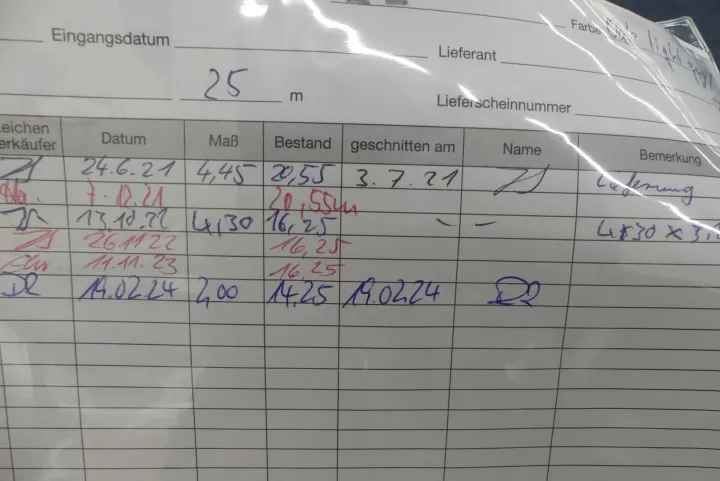 Farbe light
Eingangsdatum Lieferant
25 m Lieferscheinnummer
eichen erkäufer Datum Maß Bestand geschnitten am Name Bemerkung
24.6.21 4,45 20,55 3.7.21 Lieferung
7.12.21 20,55m
13.10.22 4,30 16,25 - -
26.11.22 16,25
11.11.23 16.25
DR 19.02.24 2,00 14.25 19.02.24 DR